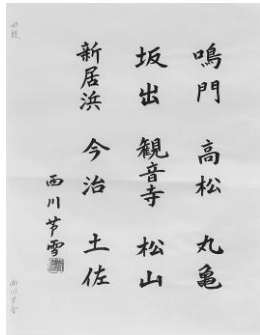 鳴門 高松 丸亀
坂出 観音寺 松山
新居浜 今治 土佐
西川芳雪
四段
西川芳雪